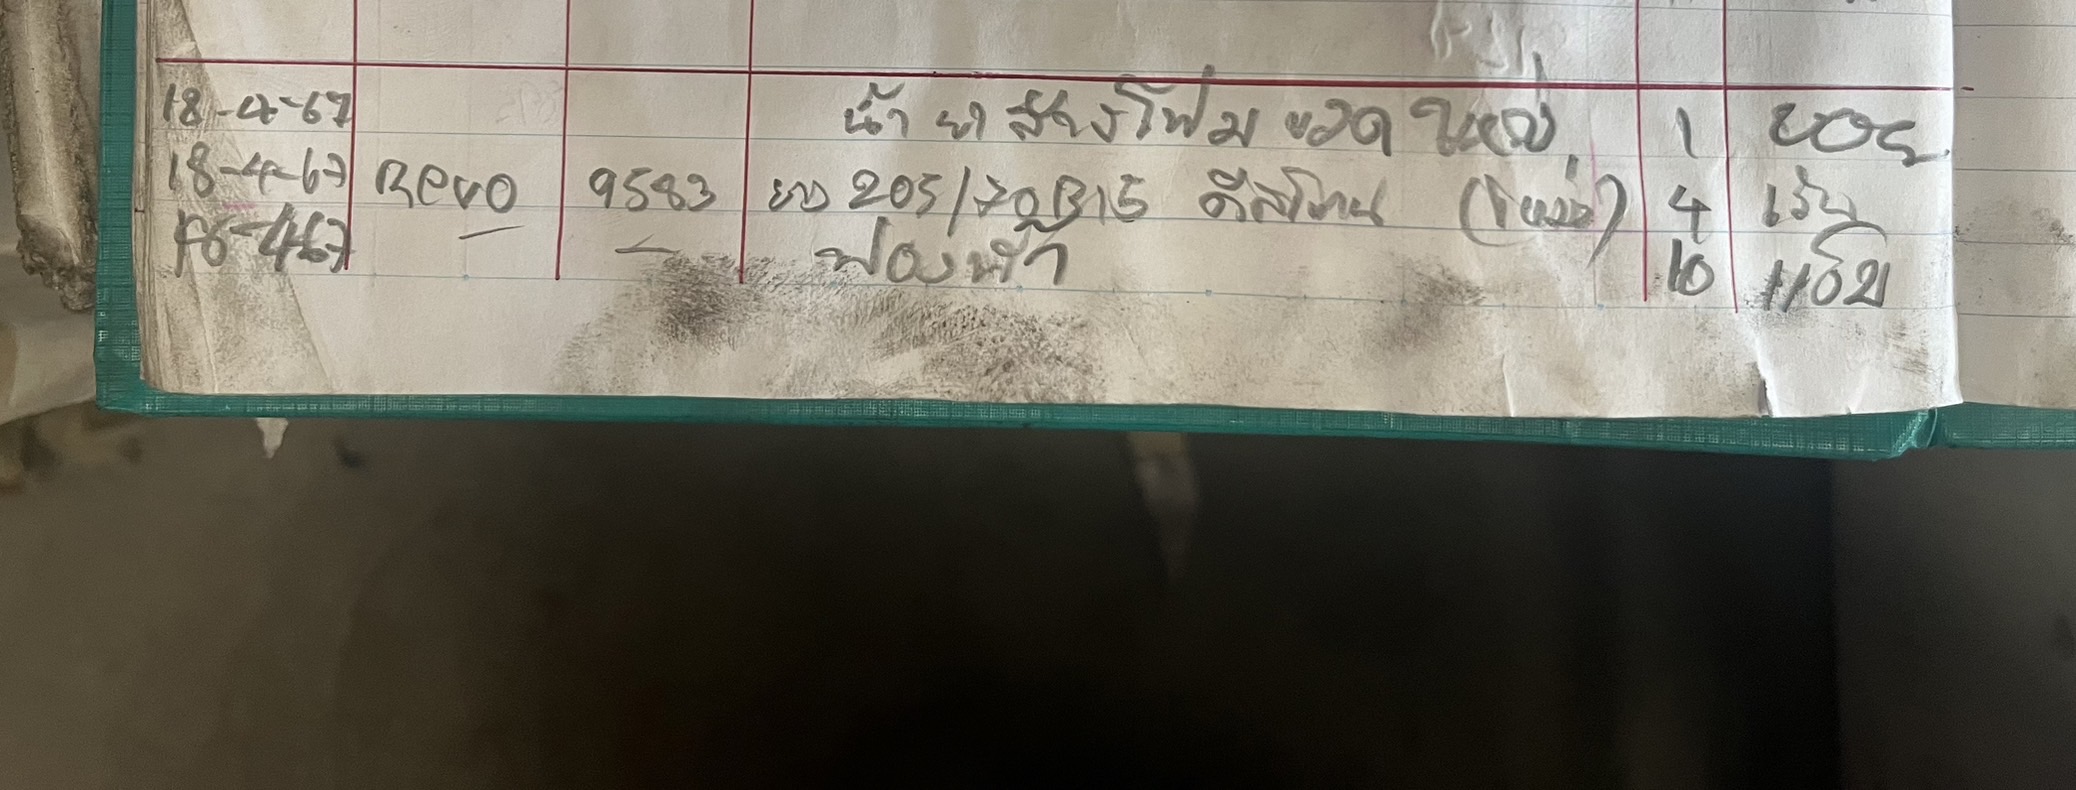 18-4-67 น้ำยาล้างโฟม ขวดใหญ่ 1 ขวด
18-4-67 Revo 9583 ยาง 205/70R15 ดีสโตน (ใหม่) 4 เส้น
-4-67 — — ฟองน้ำ 10